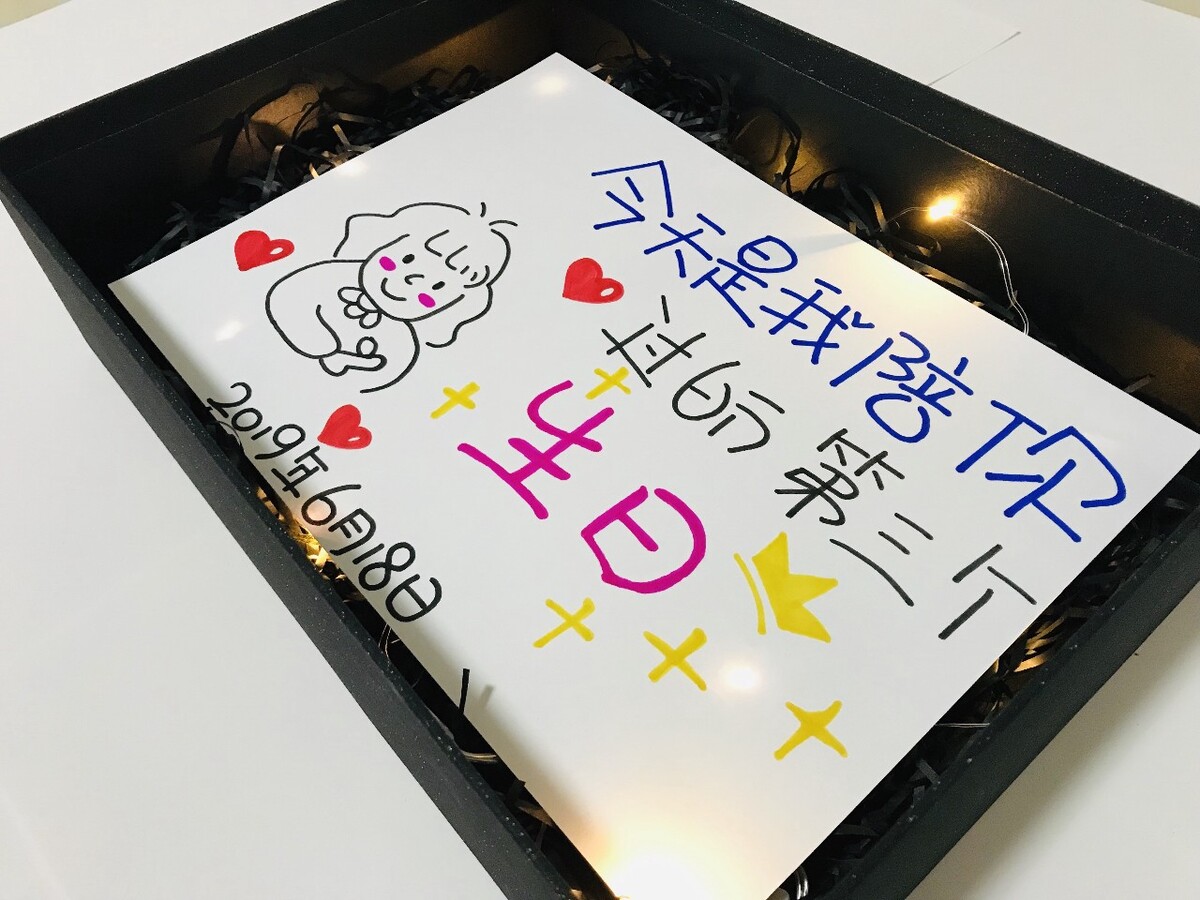 今天是我陪你
过的第三个
生日
2019年6月18日